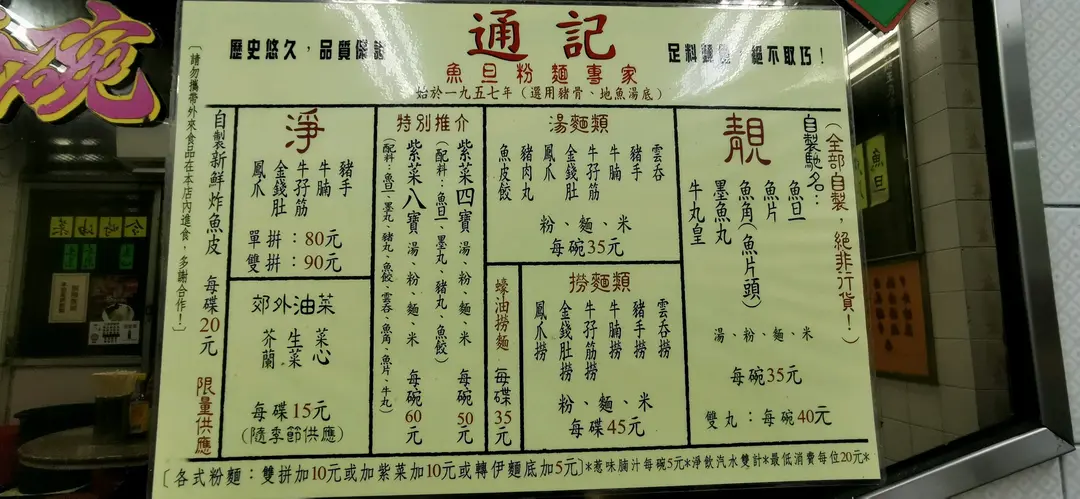 通記
歷史悠久，品質保證
足料麵，絕不取巧！
魚旦粉麵專家
始於一九五七年（選用豬骨、地魚湯底）
（全部自製，絕非行貨！）
自製馳名：
靚
魚旦
魚片
魚角（魚片頭）
墨魚丸
牛丸皇
湯、粉、麵、米
每碗35元
雙丸：每碗40元
湯麵類
雲吞
豬手
牛腩
牛孖筋
金錢肚
鳳爪
豬肉丸
魚皮餃
粉、麵、米
每碗35元
撈麵類
雲吞撈
豬手撈
牛腩撈
牛孖筋撈
金錢肚撈
鳳爪撈
粉、麵、米
每碟45元
蠔油撈麵 每碟35元
特別推介
紫菜四寶 湯、粉、麵、米 每碗50元
（配料：魚旦、墨丸、豬丸、魚餃）
紫菜八寶 湯、粉、麵、米 每碗60元
（配料：魚旦、墨丸、豬丸、魚餃、雲吞、魚角、魚片、牛丸）
淨
豬手
牛腩
牛孖筋
金錢肚
鳳爪
單拼：80元
雙拼：90元
郊外油菜
菜心
生菜
芥蘭
每碟15元
（隨季節供應）
自製新鮮炸魚皮 每碟20元 限量供應
〔請勿攜帶外來食品在本店內進食，多謝合作！〕
〔各式粉麵：雙拼加10元或加紫菜加10元或轉伊麵底加5元〕*惹味腩汁每碗5元*淨飲汽水雙計*最低消費每位20元*
魚旦